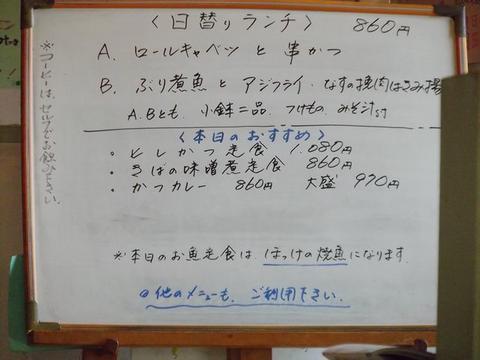 〈日替りランチ〉 860円
A. ロールキャベツ と 串かつ
B. ぶり煮魚 と アジフライ・なすの挽肉はさみ揚
A.Bとも. 小鉢二品. つけもの. みそ汁付
〈本日のおすすめ〉
・ヒレかつ定食 1.080円
・さばの味噌煮定食 860円
・かつカレー 860円 大盛 990円
※本日のお魚定食は ほっけの焼魚になります.
他のメニューも. ご利用下さい.
※コーヒーは、セルフでお飲み下さい。